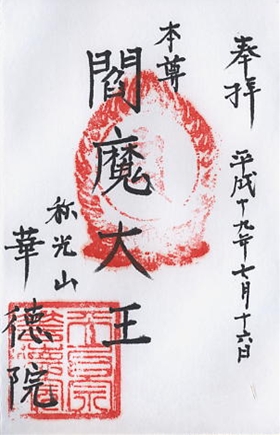 奉拝
平成十九年七月十六日
本尊
閻魔大王
称光山
華徳院